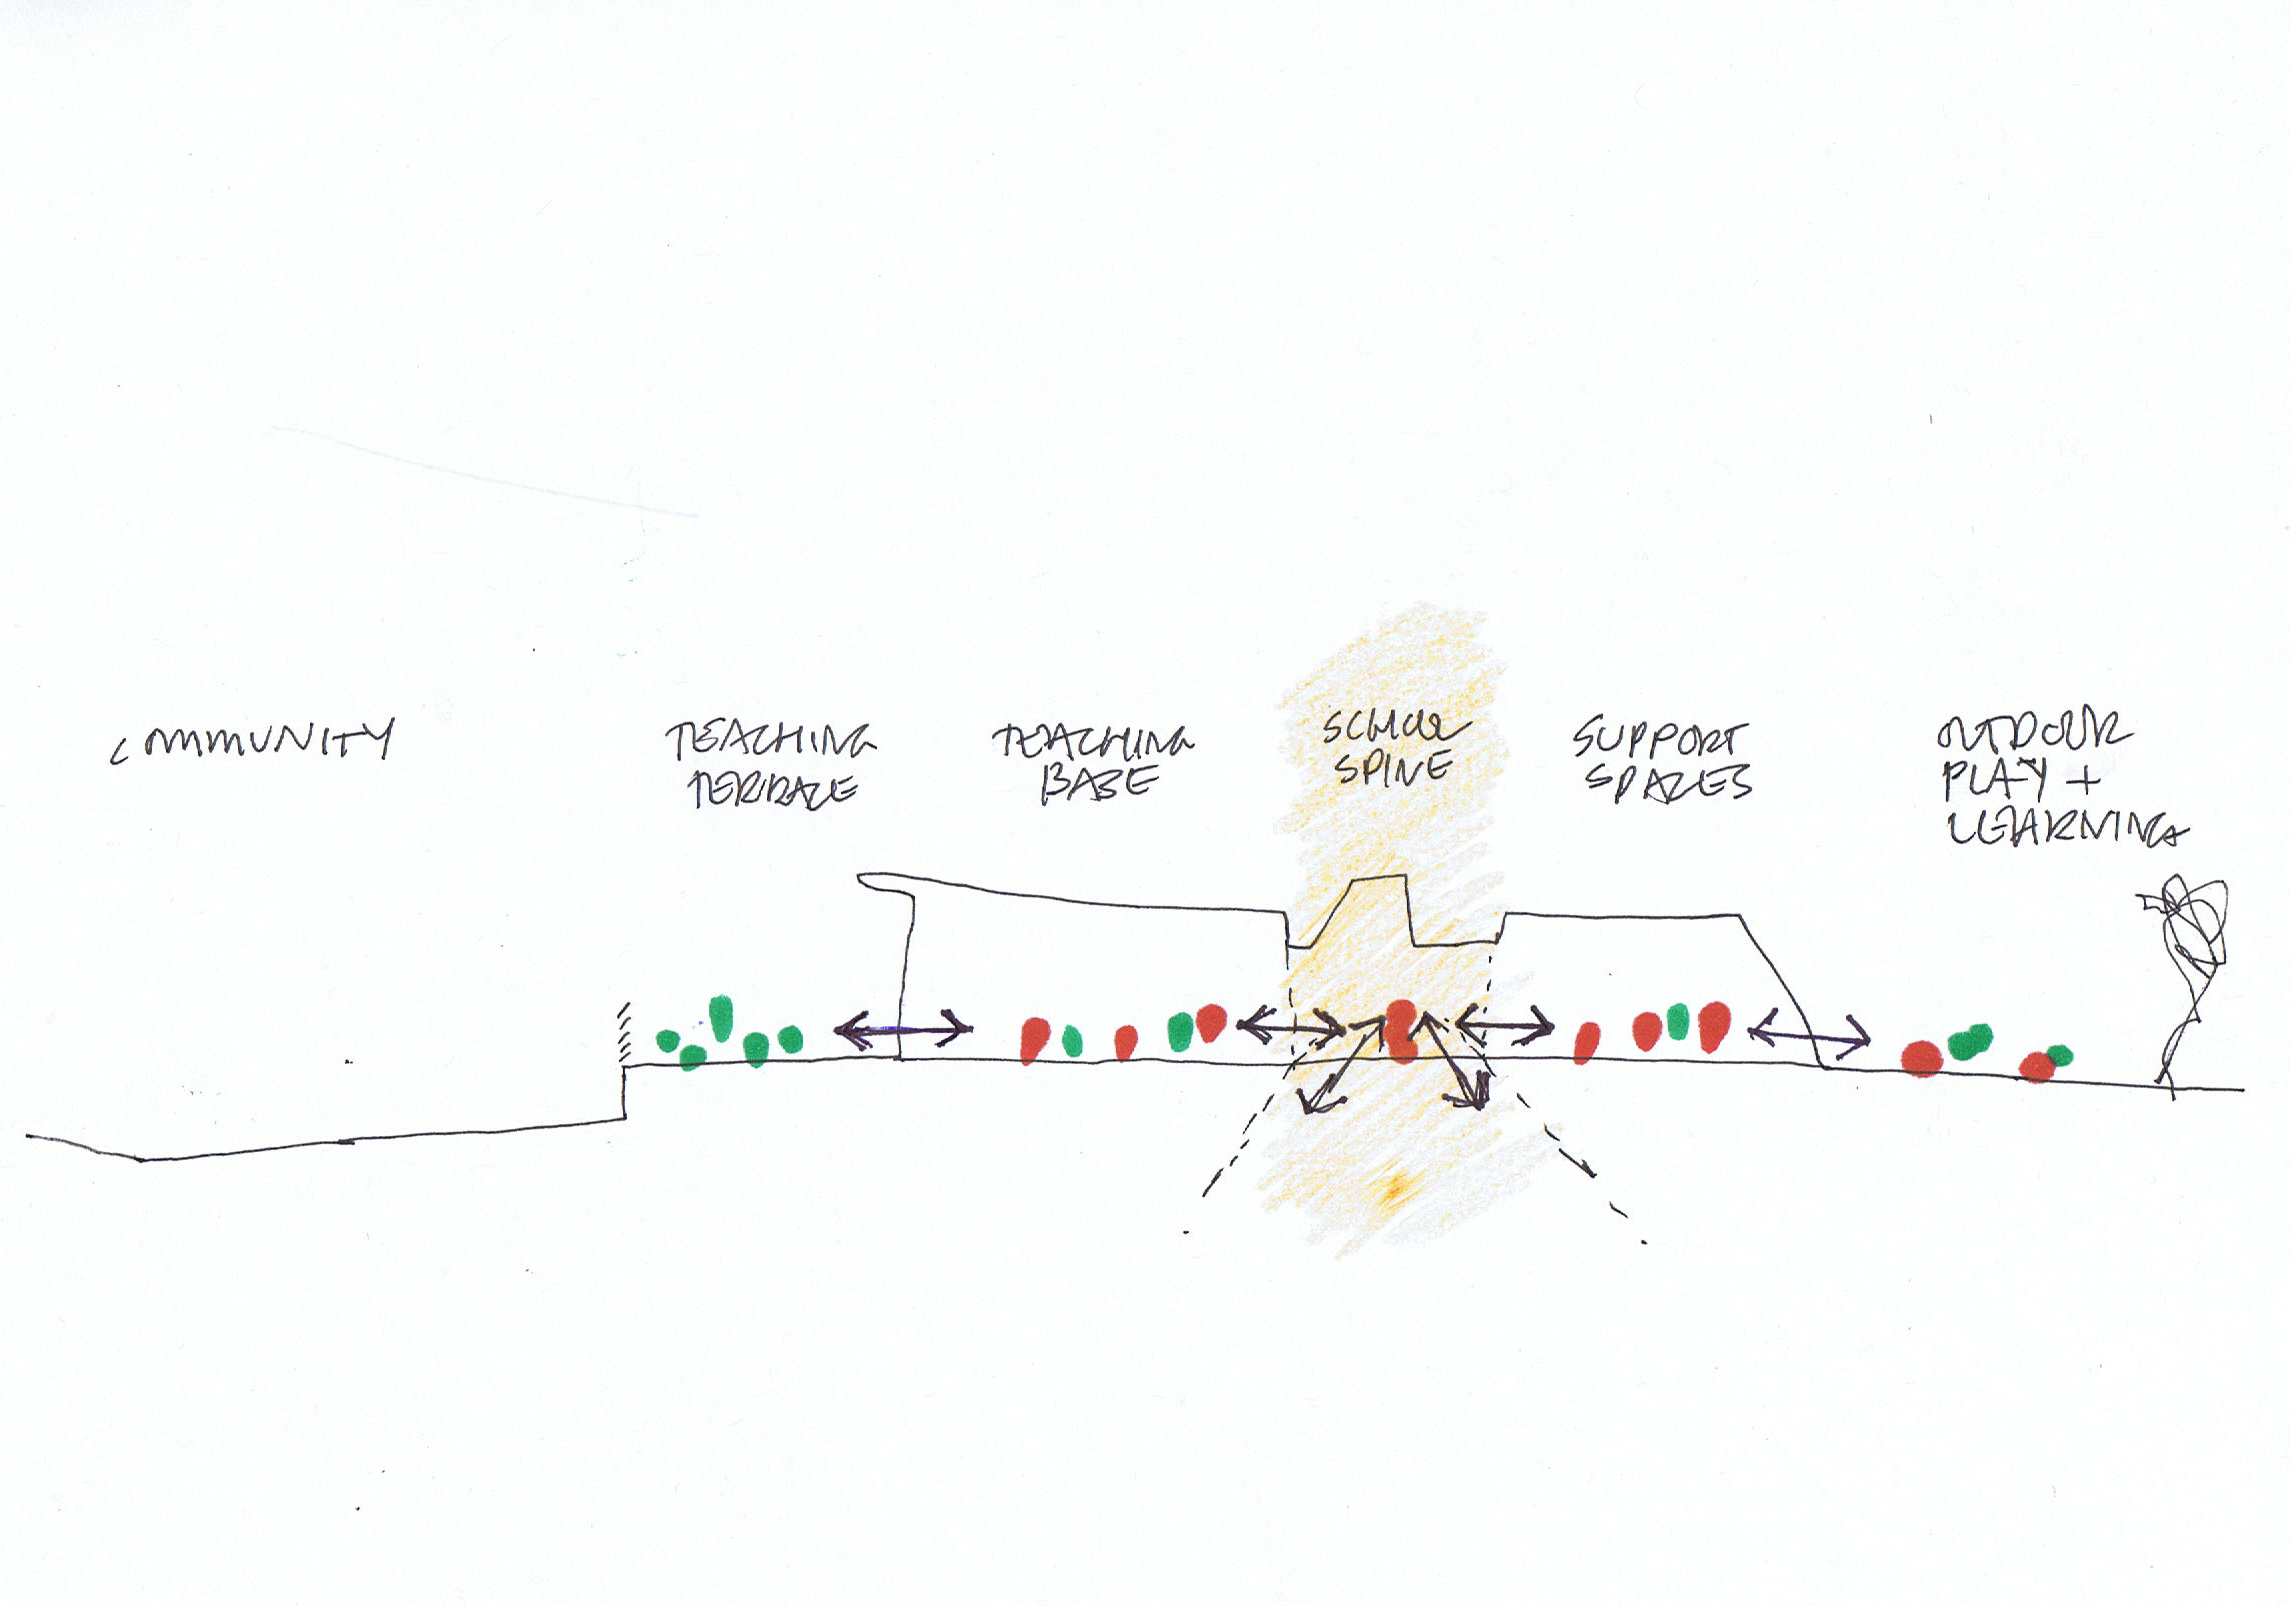 COMMUNITY
TEACHING
TERRACE
TEACHING
BASE
SCHOOL
SPINE
SUPPORT
SPACES
OUTDOOR
PLAY +
LEARNING